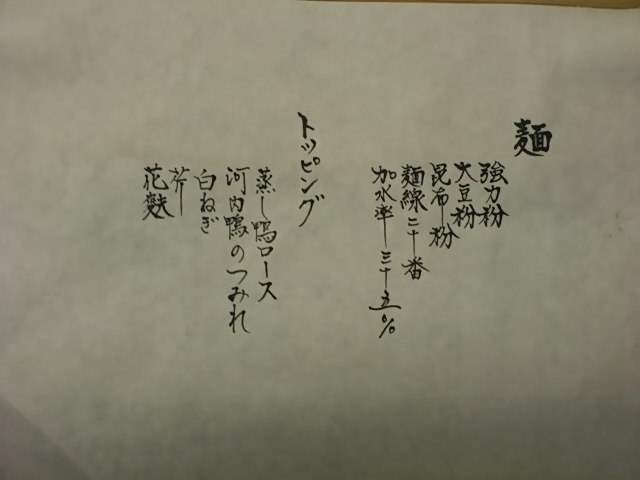 麺
強力粉
大豆粉
昆布粉
麺線二十番
加水率三十五%
トッピング
蒸し鴨ロース
河内鴨のつみれ
白ねぎ
芹
花麩